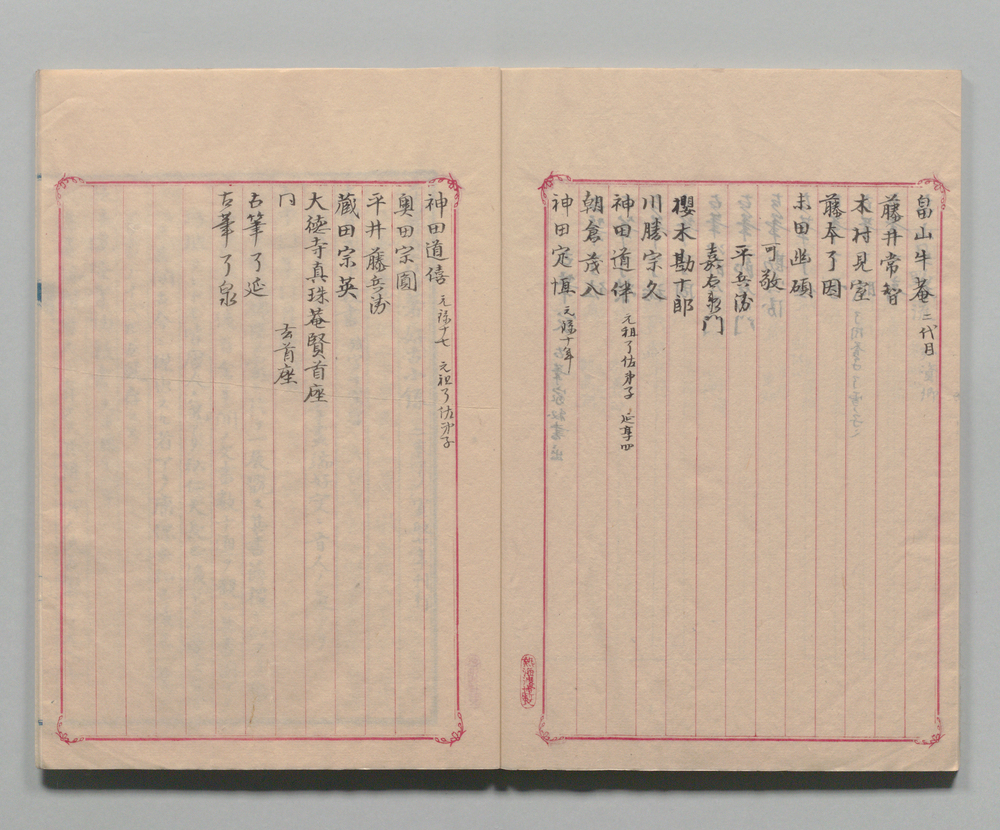 畠山牛菴 二代目
藤井常智
木村見室
藤本了因
未田幽碩
可敬
平兵衛
嘉右衛門
櫻木勘十郎
川勝宗久
神田道伴 元祖了佐弟子 延享四
朝倉茂入
神田定恒 元禄十年
神田道僖 元禄十七 元祖了佐弟子
奥田宗圓
平井藤兵衛
蔵田宗英
大徳寺真珠菴賢首座
仝 玄首座
古筆了延
古筆了泉